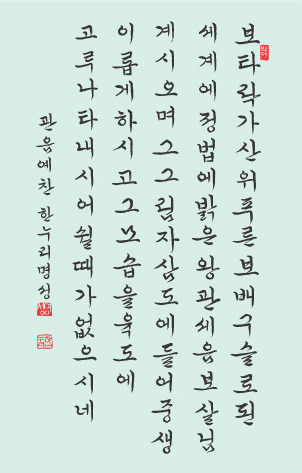 보타락가산위푸른보배구슬로된
세계에정법에밝은왕관세음보살님
계시오며그그림자삼도에들어중생
이롭게하시고그모습을육도에
고루나타내시어쉴때가없으시네
관음예찬한누리명성